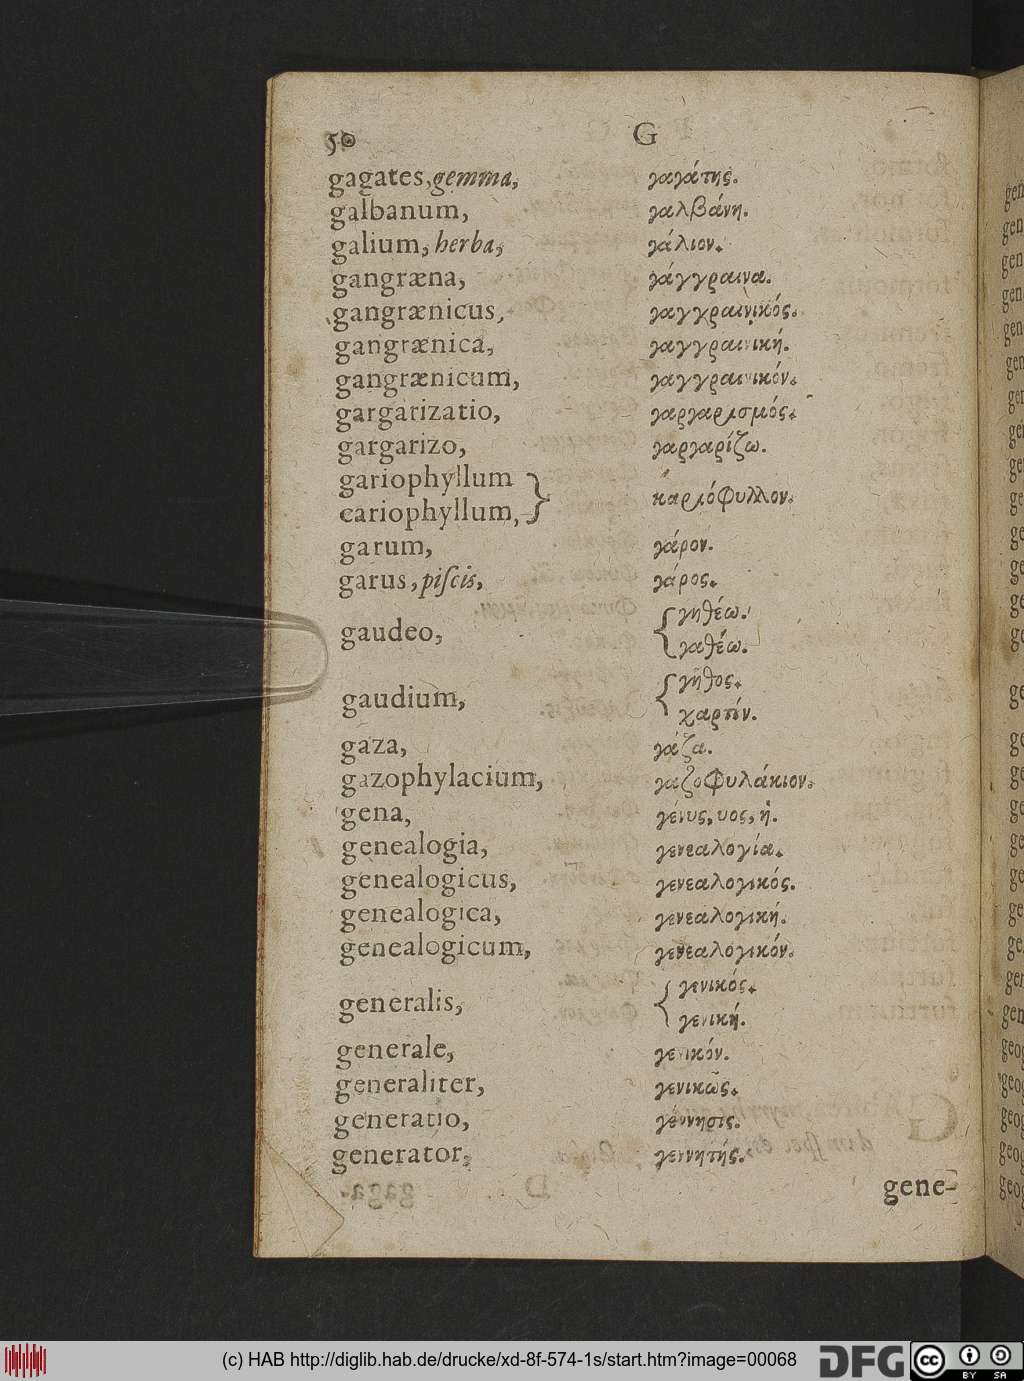 50 G
gagates, gemma, γαγάτης.
galbanum, γαλβάνη.
galium, herba, γάλιον.
gangræna, γάγγραινα.
gangrænicus, γαγγραινικός.
gangrænica, γαγγραινική.
gangrænicum, γαγγραινικόν.
gargarizatio, γαργαρισμός.
gargarizo, γαργαρίζω.
gariophyllum
cariophyllum, } καριόφυλλον.
garum, γάρον.
garus, piſcis, γάρος.
gaudeo, { γηθέω.
γαθέω.
gaudium, { γῆθος.
χαρτίν.
gaza, γάζα.
gazophylacium, γαζοφυλάκιον.
gena, γένυς, υος, ἡ.
genealogia, γενεαλογία.
genealogicus, γενεαλογικός.
genealogica, γενεαλογική.
genealogicum, γενεαλογικόν.
generalis, { γενικός.
γενική.
generale, γενικόν.
generaliter, γενικῶς.
generatio, γέννησις.
generator, γεννητής.
gene-
(c) HAB http://diglib.hab.de/drucke/xd-8f-574-1s/start.htm?image=00068
DFG
cc BY SA